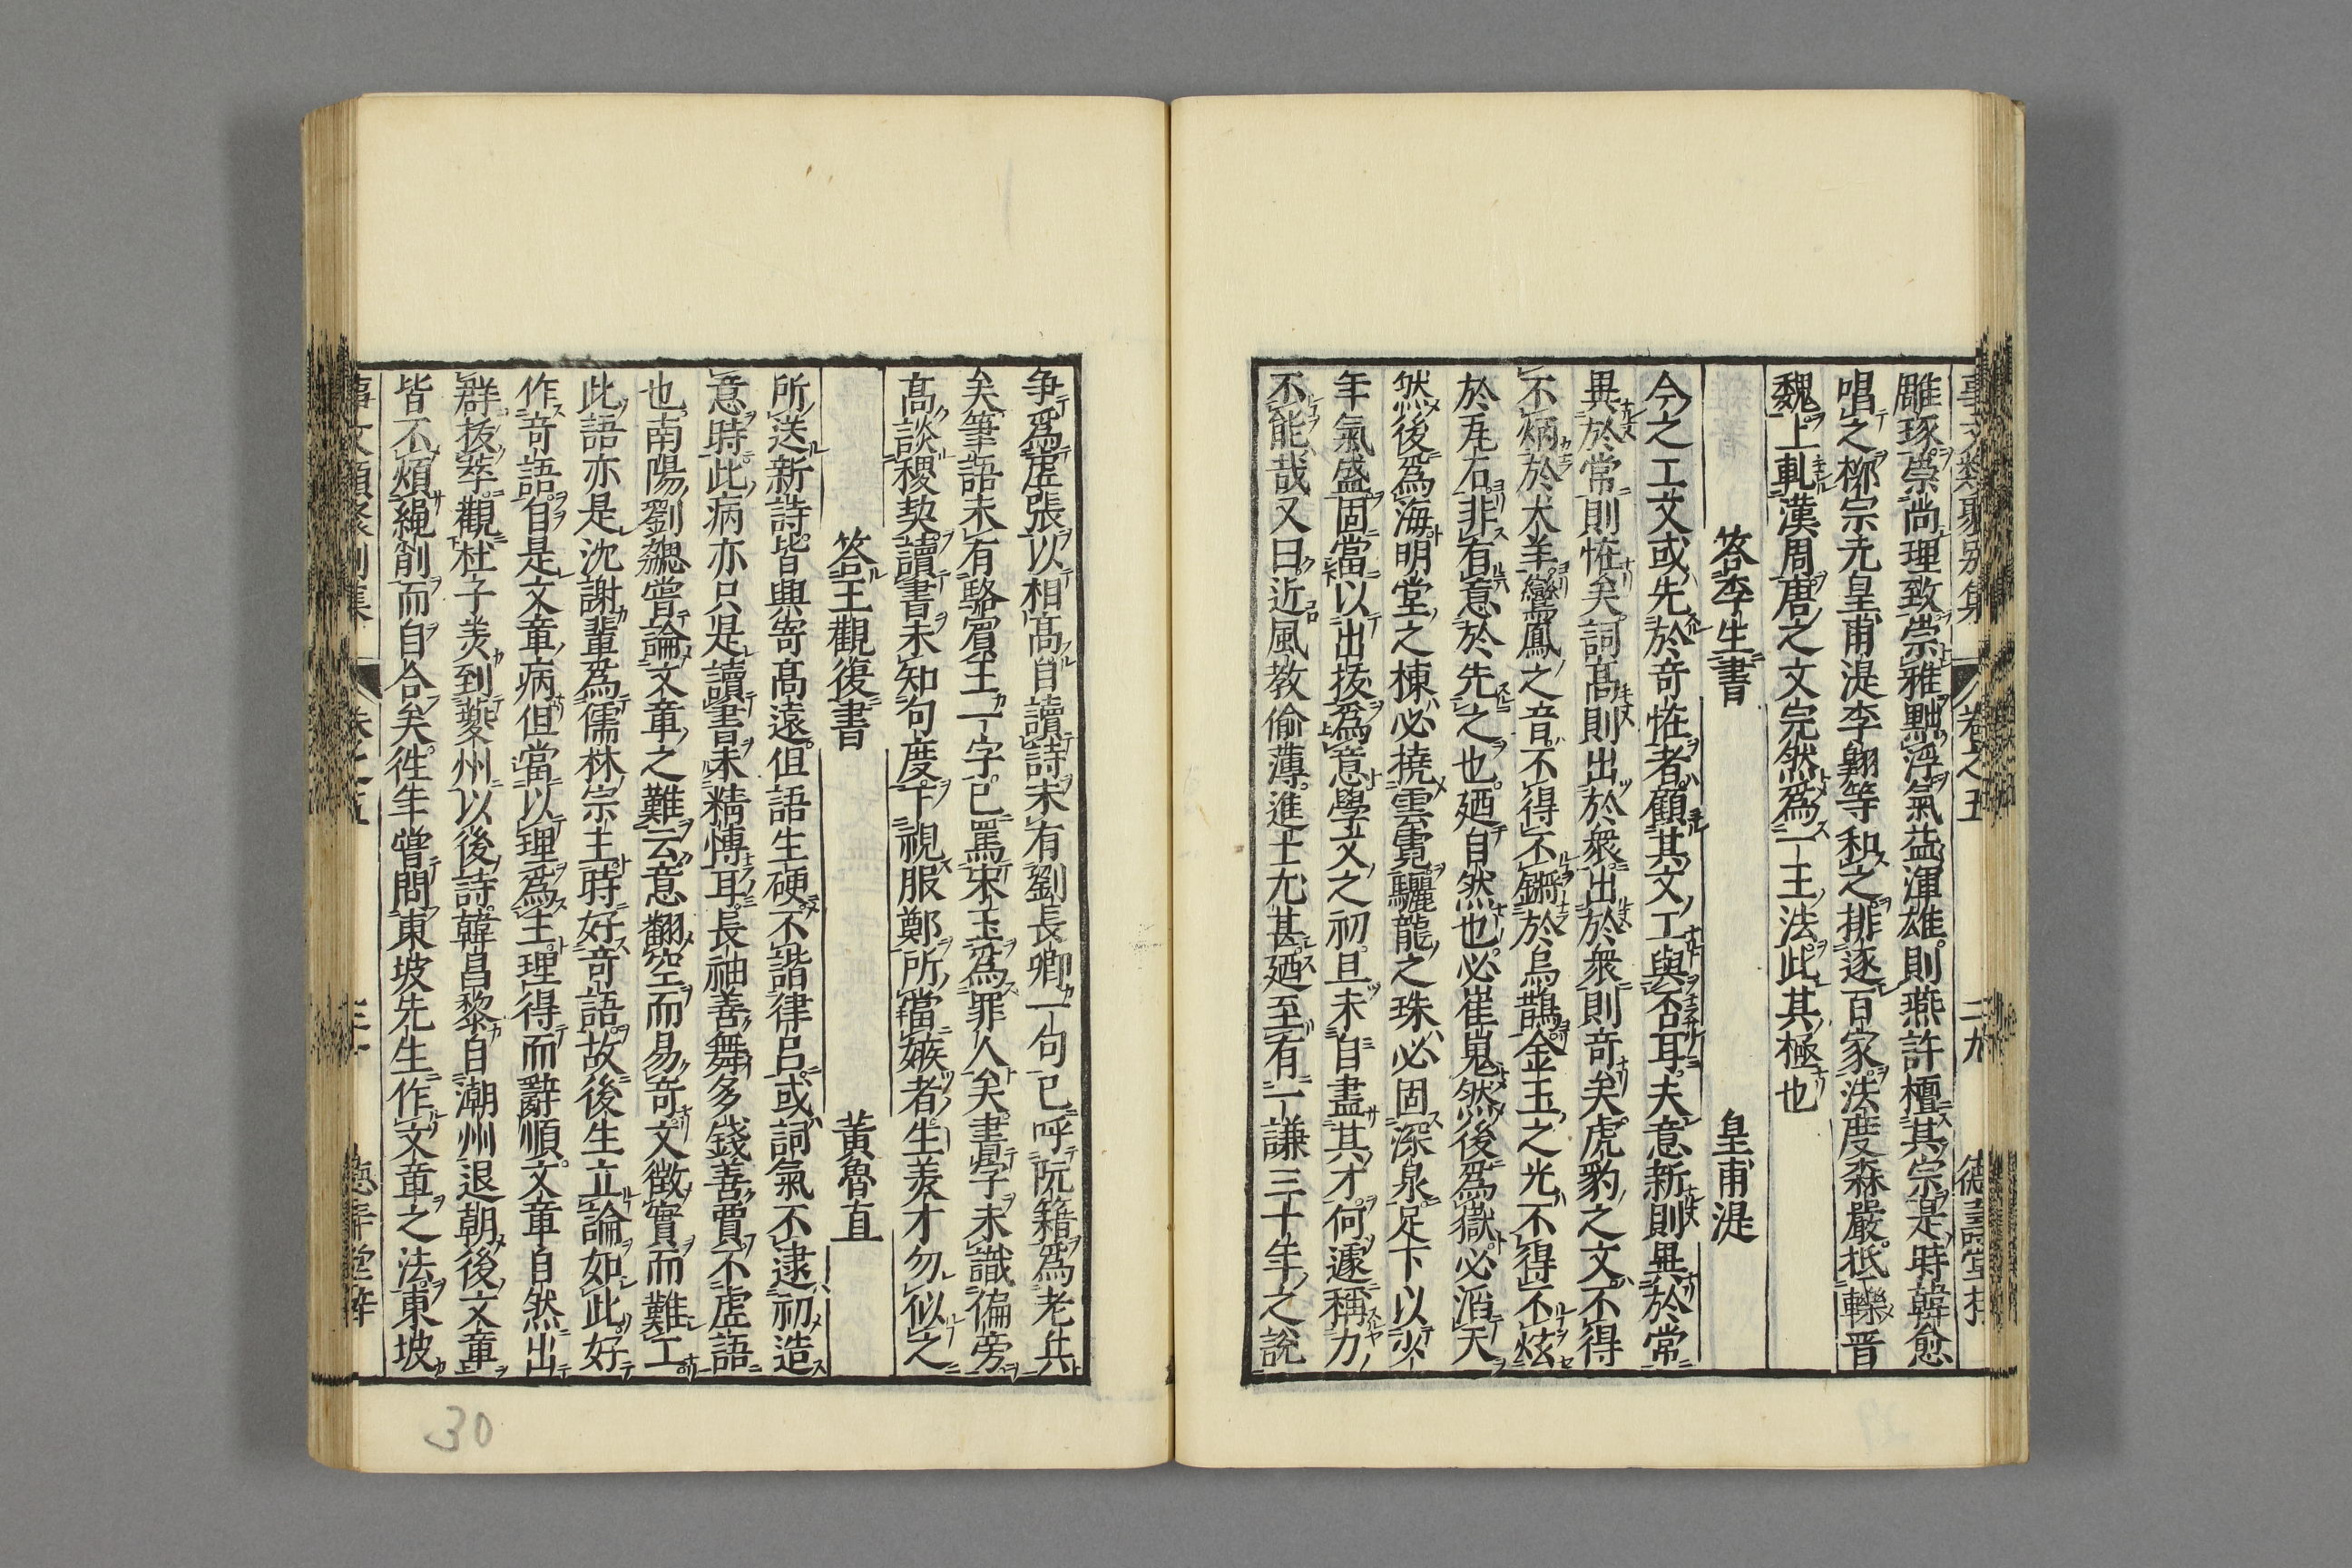 事文類聚別集 卷之五 二九 德壽堂梓
雕琢崇尚理致崇雅黜浮氣益渾雄則燕許檀其宗是時韓愈
唱之栁宗元皇甫湜李翺等和之排逐百家法度森嚴抵轢晉
魏上軋漢周唐之文完然爲一王法此其極也
答李生書 皇甫湜
今之工文或先於竒恠者顧其文工與否耳夫意新則異於常
異於常則恠矣詞髙則出於衆出於衆則竒矣虎豹之文不得
不炳於犬羊鸞鳳之音不得不鏘於烏鵲金玉之光不得不炫
於瓦石非有意於先之也廼自然也必崔嵬然後爲嶽必滔天
然後爲海明堂之棟必撓雲霓驪龍之珠必固深泉足下以少
年氣盛固當以出拔爲意學文之初且未自盡其才何遽稱力
不能哉又曰近風教偷薄進士尤甚廼至有一謙三十年之説
争爲虛張以相髙自讀詩未有劉長卿一句已呼阮籍爲老兵
矣筆語未有駱賔王一字已罵宋玉爲罪人矣書字未識偏旁
髙談稷契讀書未知句度下視服鄭所當嫉者生美才勿似之
答王觀復書 黃魯直
所送新詩皆興寄髙遠但語生硬不諧律呂或詞氣不逮初造
意時此病亦只是讀書未精愽耳長袖善舞多錢善賈不虛語
也南陽劉勰嘗論文章之難云意翻空而易竒文徵實而難工
此語亦是沈謝輩爲儒林宗主時好竒語故後生立論如此好
作竒語自是文章病但當以理爲主理得而辭順文章自然出
群拔萃觀杜子羙到夔州以後詩韓昌黎自潮州退朝後文章
皆不煩繩削而自合矣徃年嘗問東坡先生作文章之法東坡
事文類聚別集 卷之五 三十 德壽堂梓
30